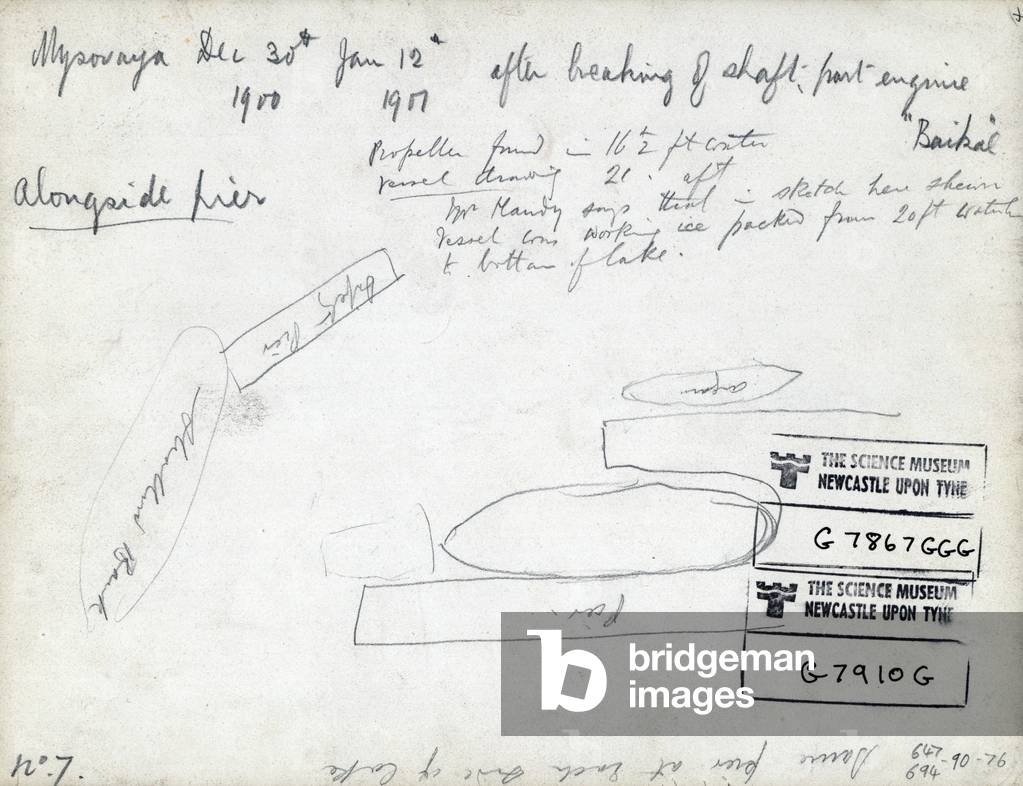 Mysovaya Dec 30th Jan 12th after breaking of shaft, port engine
1900 1901
"Baikal"
Propeller found in 16½ ft water
vessel drawing 20. aft
Alongside pier
Mr Handy says that in sketch here shewn
Vessel was working ice packed from 20ft waterline
to bottom of lake.
Pier
Angara
Shallow Bank
THE SCIENCE MUSEUM
NEWCASTLE UPON TYNE
G 7867GGG
THE SCIENCE MUSEUM
NEWCASTLE UPON TYNE
pier
G 7910G
bridgeman
images
Same pier at each side of lake
No 4.
647
694 -90-26